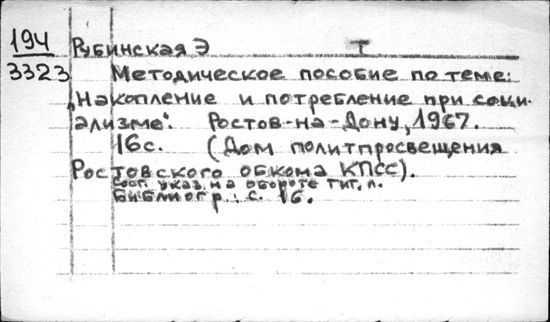 194 Рубинская Э Т
3323 Методическое пособие по теме:
„Накопление и потребление при соци-
ализме". Ростов-на-Дону, 1967.
16с. (Дом политпросвещения
Ростовского обкома КПСС).
Сост. указ. на обороте тит. л.
Библиогр.: с. 16.